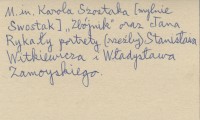 M. in. Karola Szostaka [mylnie
Swostak] „Zbójnik" oraz Jana
Rykały portrety (rzeźby) Stanisława
Witkiewicza i Władysława
Zamoyskiego.